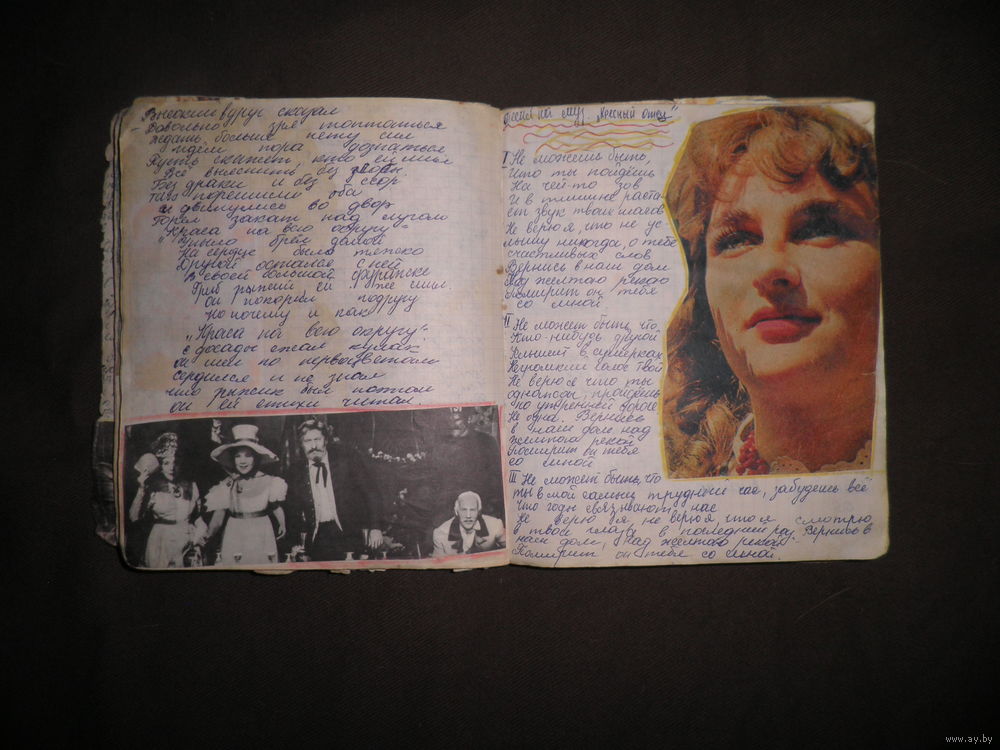 Высокий вдруг сказал
– Довольно зря топтаться
Ждать больше нету сил
Идём пора дознаться
Пусть скажет, кто ей мил
Всё выяснить без
Без драки и без ссор
Так порешили оба
и двинулись во двор
Горел закат над лугом
"Краса на всю округу"
Уныло брёл домой
На сердце было тяжко
Другой остался с ней
В своей большой фуражке
Гриб рыжий ей же мил.
он покорил подругу
но почему и как
"Краса на всю округу"
с досады сжал кулак
Он шел по первоцветам
сердился и не знал
что рыжик был поэтом
он ей стихи читал
Песня на муз. "Кресный отец"
I Не может быть,
Что ты пойдёшь
На чей-то зов
И в тишине раста-
ет звук твоих шагов
Не верю я, что не ус-
лышу никогда, о тебе
счастливых слов
Вернись в наш дом
Над желтою рекою
Помирит он тебя
со мной
II Не может быть, что
Кто-нибудь другой
Услышит в сумерках
Негромкий голос твой
Не верю я что ты
однажды, пройдёшь
по утренней дороге
Не одна. Вернись
в наш дом над
желтою рекой
Помирит он тебя
со мной
III Не может быть, что
ты в мой самый трудный час, забудешь всё
Что годы связывают нас
Не верю я не верю я, что я смотрю
в твои глаза в последний раз. Вернись в
наш дом, над желтою рекой
Помирит он тебя со мной.
www.ay.by